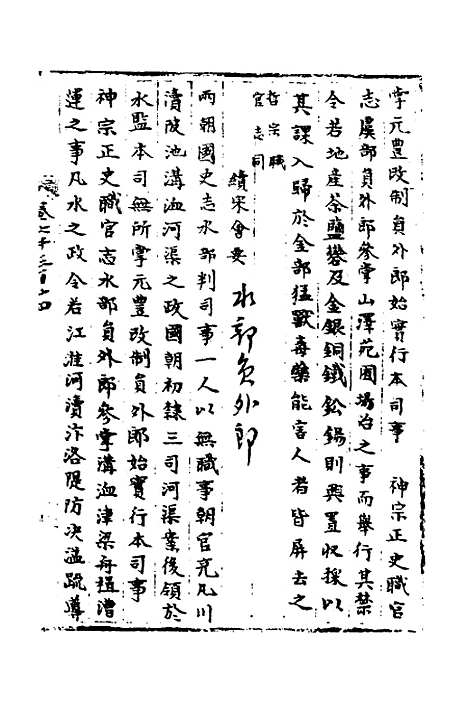 掌元豐改制員外郎始實行本司事　神宗正史職官
志虞部員外郎參掌山澤苑囿場冶之事而舉行其禁
令若地產茶鹽礬及金銀銅鐵鉛錫則興置收採以
其課入歸於金部猛獸毒藥能害人者皆屏去之
哲宗職
官志同
續宋會要　水部員外郎
兩朝國史志水部判司事一人以無職事朝官充凡川
瀆陂池溝洫河渠之政國朝初隸三司河渠案後領於
水監本司無所掌元豐改制員外郎始實行本司事
神宗正史職官志水部員外郎參掌溝洫津梁舟楫漕
運之事凡水之政令若江淮河瀆汴洛隄防決溢疏導
卷七千三百十四